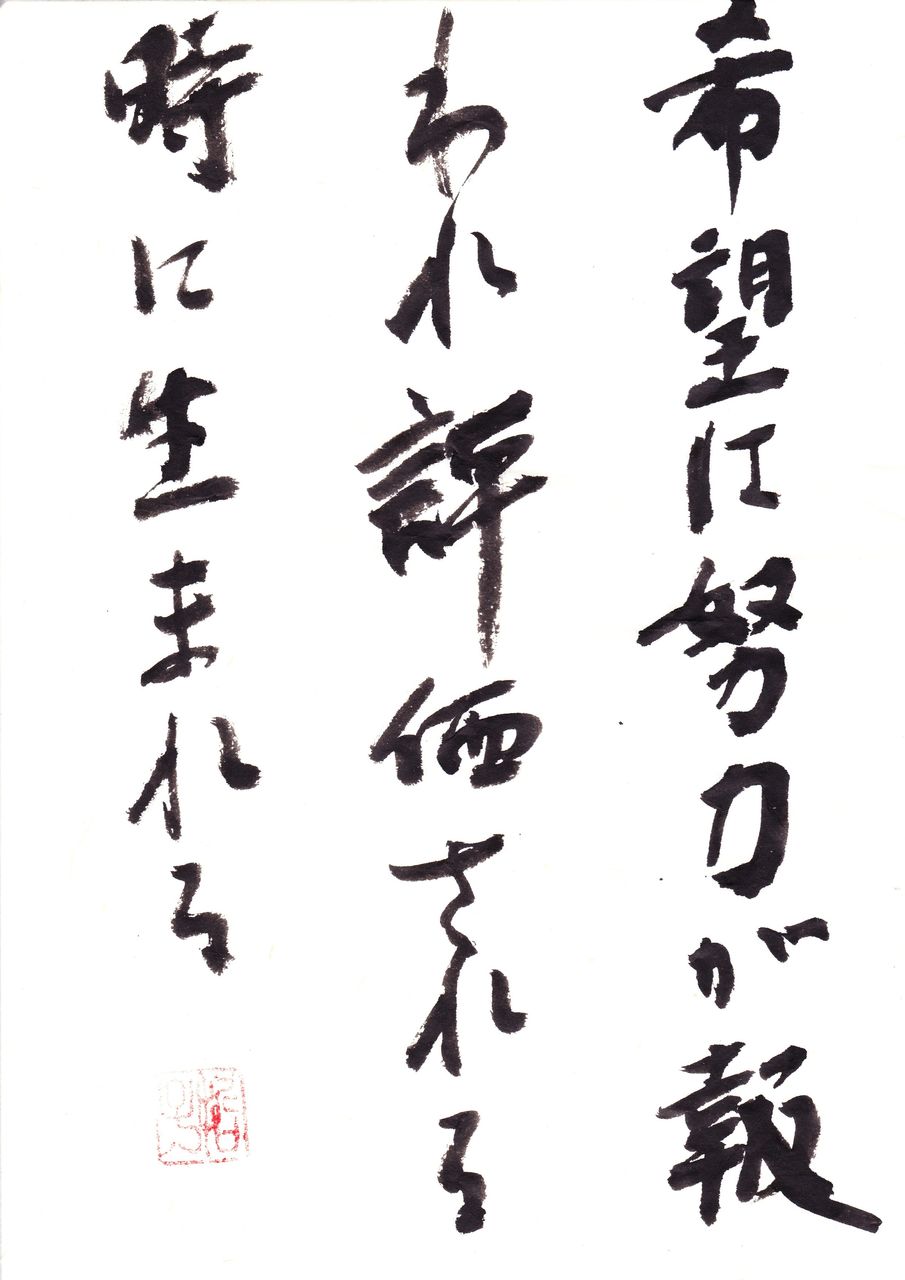 希望は努力が報
われ評価される
時に生まれる